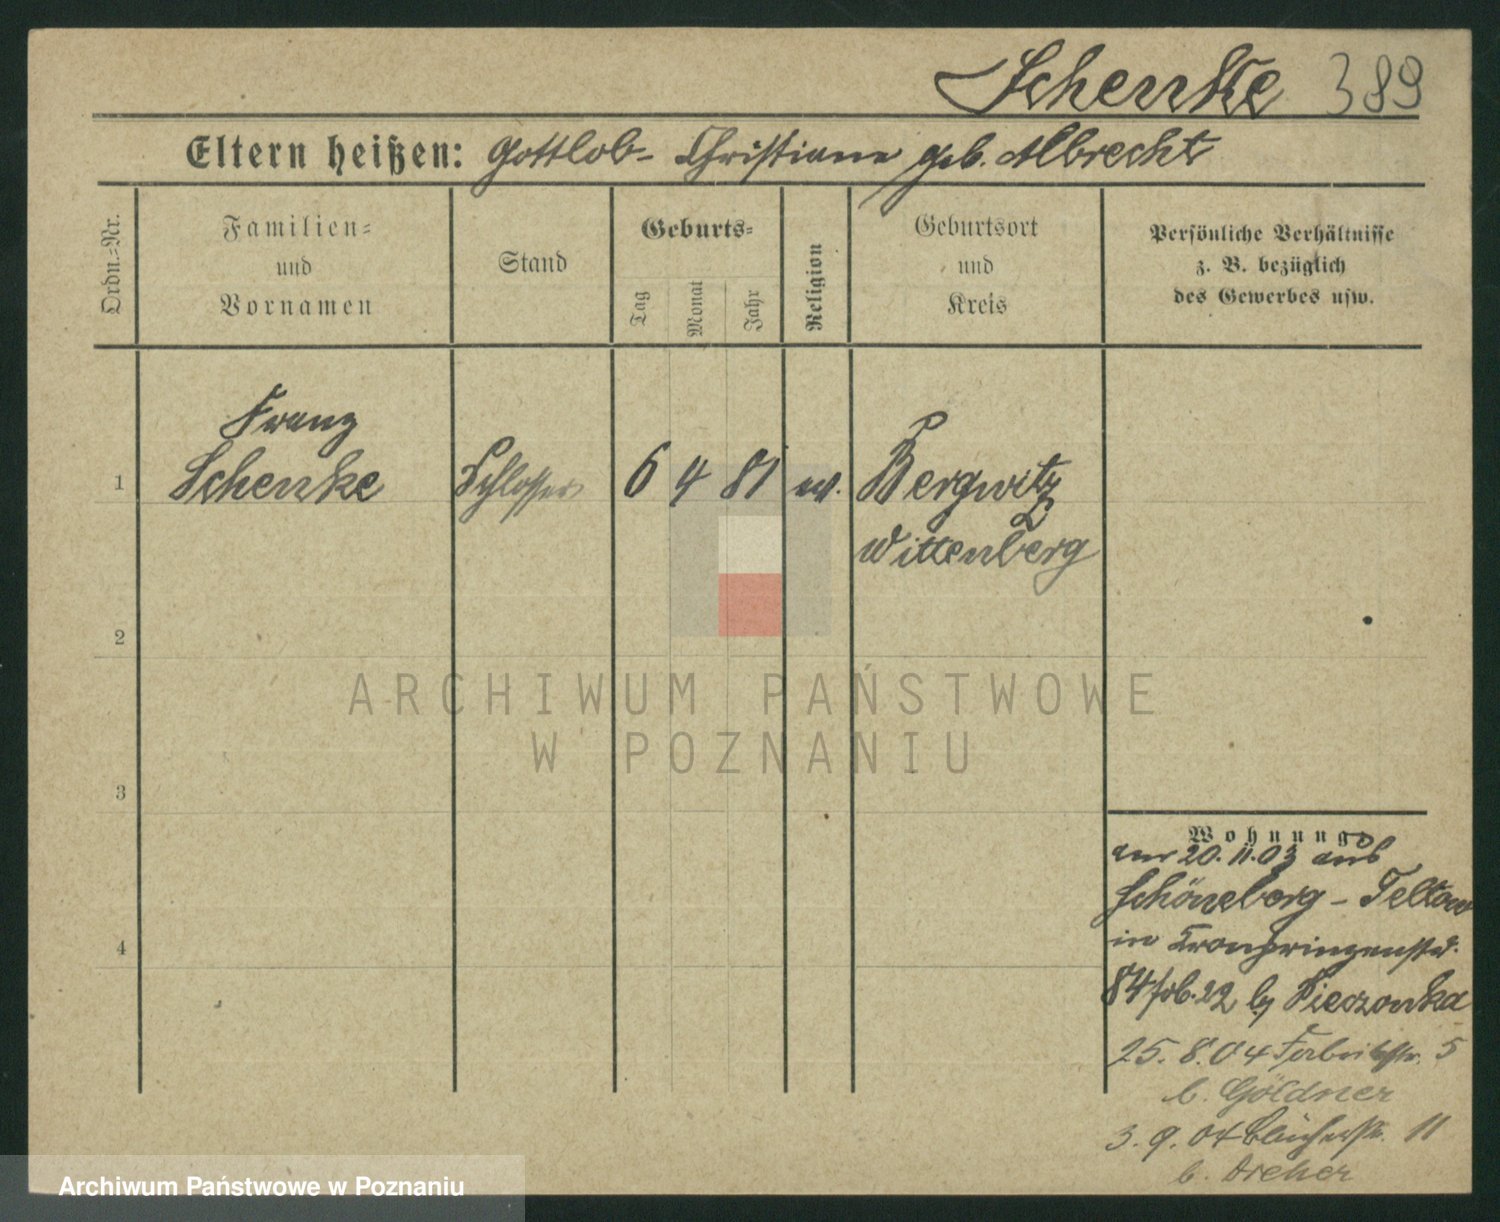 Schenke 389
Eltern heißen: Gottlob - Christiane geb. Albrecht
Ordn.-Nr.
Familien-
und
Vornamen
Stand
Geburts-
Tag
Monat
Jahr
Religion
Geburtsort
und
Kreis
Persönliche Verhältnisse
z. B. bezüglich
des Gewerbes usw.
Franz
1 Schenke Schlosser 6 4 81 ev. Bergwitz
Wittenberg
2
3
4
Wohnung
am 20.11.03 aus
Schöneberg - Teltow
in Kronprinzenstr.
84 b.
25.8.04 Fabrikstr. 5
b. Göldner
3.9.04 Blücherstr. 11
b. Dreher
ARCHIWUM PAŃSTWOWE
W POZNANIU
Archiwum Państwowe w Poznaniu